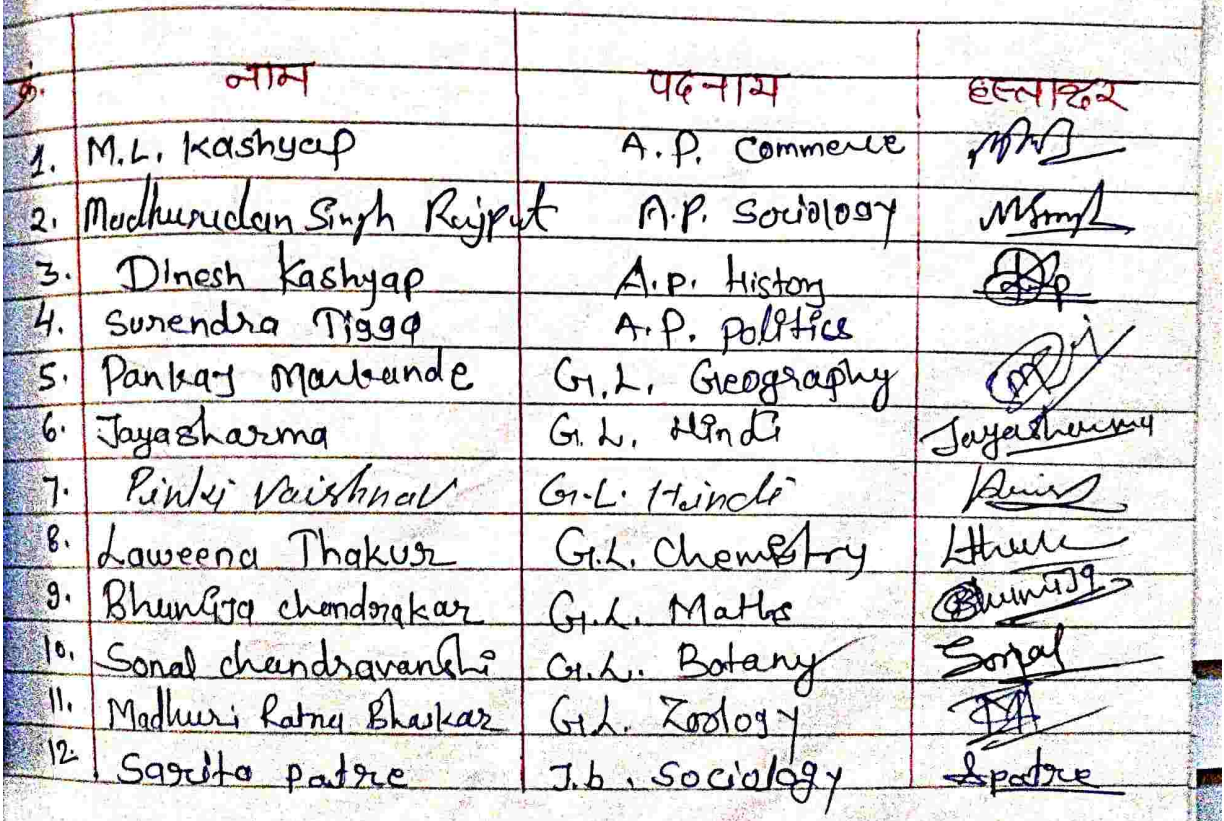 क्र. नाम पदनाम हस्ताक्षर
1. M.L. Kashyap A.P. Commerce
2. Madhusudan Singh Rajput A.P. Sociology MSingh
3. Dinesh Kashyap A.P. History
4. Surendra Tigga A.P. Politics
5. Pankaj Markande G.L. Geography
6. Jayasharma G.L. Hindi Jayasharma
7. Pinki Vaishnav G.L. Hindi
8. Laweena Thakur G.L. Chemistry
9. chandrakar G.L. Maths
10. Sonal chandravanshi G.L. Botany Sonal
11. Madhuri Ratna Bhaskar G.L. Zoology
12. Sarita Patre J.b. Sociology Spatre